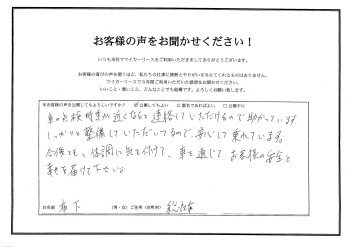 お客様の声をお聞かせください！
いつも当社でマイカーリースをご利用いただきましてありがとうございます。
お客様の喜びの声を聞くほど、私たちの仕事に情熱とやりがいを与えてくれるものはありません。
マイカーリースでご利用ご利用いただいて
いいこと・悪いこと、どんなことでも結構です。よろしくお願い致します。
※お客様の声を公開してもよろしいですか？ ☑公開してもよい □匿名であればよい □公開不可
車の点検時期が近くなると連絡していただけるので助かっています。
しっかりと整備していただいてるので、安心して乗れています。
今後とも、体調に気を付けて、車を通じてお客様の安全と
幸を届けて下さいね
お名前 布下 (男・女) ご住所(市町村) 松本市